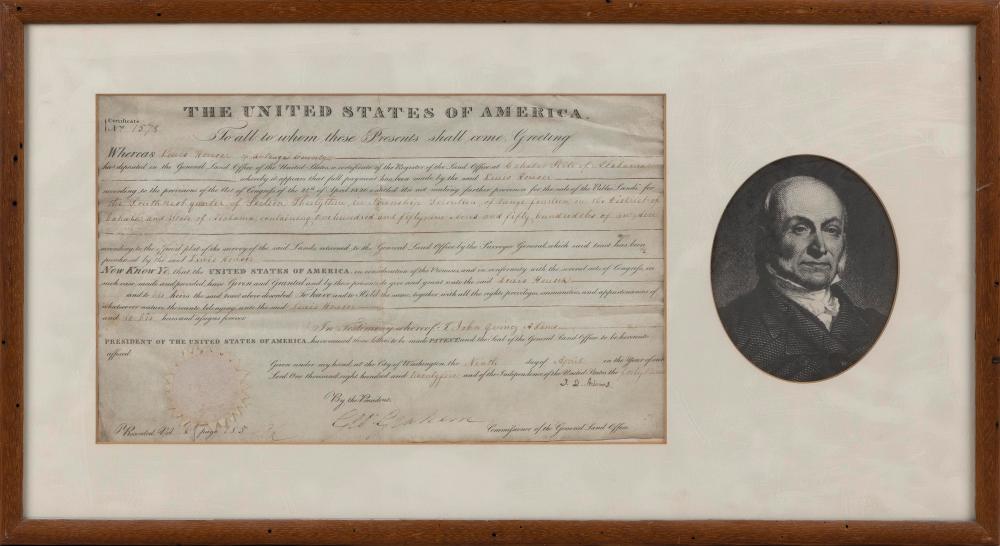 THE UNITED STATES OF AMERICA.
Certificate
No. 1578
To all to whom these Presents shall come, Greeting
WHEREAS Lewis Houser of Autauga County
has deposited in the General Land Office of the United States, a certificate of the Register of the Land Office at Cahaba State of Alabama
whereby it appears that full payment has been made by the said Lewis Houser
according to the provisions of the Act of Congress of the 24th of April 1820, entitled An act making further provision for the sale of the Public Lands for
the South West quarter of Section Thirty three, in Township Seventeen, of Range fourteen in the District of
Cahaba, and State of Alabama, containing One hundred and fifty nine Acres and fifty hundredths of an Acre
according to the official plat of the survey of the said Lands, returned to the General Land Office by the Surveyor General, which said tract has been
purchased by the said Lewis Houser
NOW KNOW YE, that the UNITED STATES OF AMERICA, in consideration of the Premises, and in conformity with the several acts of Congress, in
such case, made and provided, have Given and Granted and by these presents do give and grant unto the said Lewis Houser
and to his heirs the said tract above described: To have and to Hold the same, together with all the rights, privileges, immunities, and appurtenances of
whatsoever nature thereunto belonging, unto the said Lewis Houser
and to his heirs and assigns forever.
In Testimony whereof, I John Quincy Adams
PRESIDENT OF THE UNITED STATES OF AMERICA, have caused these letters to be made PATENT, and the Seal of the General Land Office to be hereunto
affixed
Given under my hand, at the City of Washington, the Ninth day of April in the Year of our
Lord One thousand eight hundred and twenty five and of the Independence of the United States the forty ninth
J. Q. Adams
By the President,
Geo Graham
Commissioner of the General Land Office
Recorded Vol. page 185